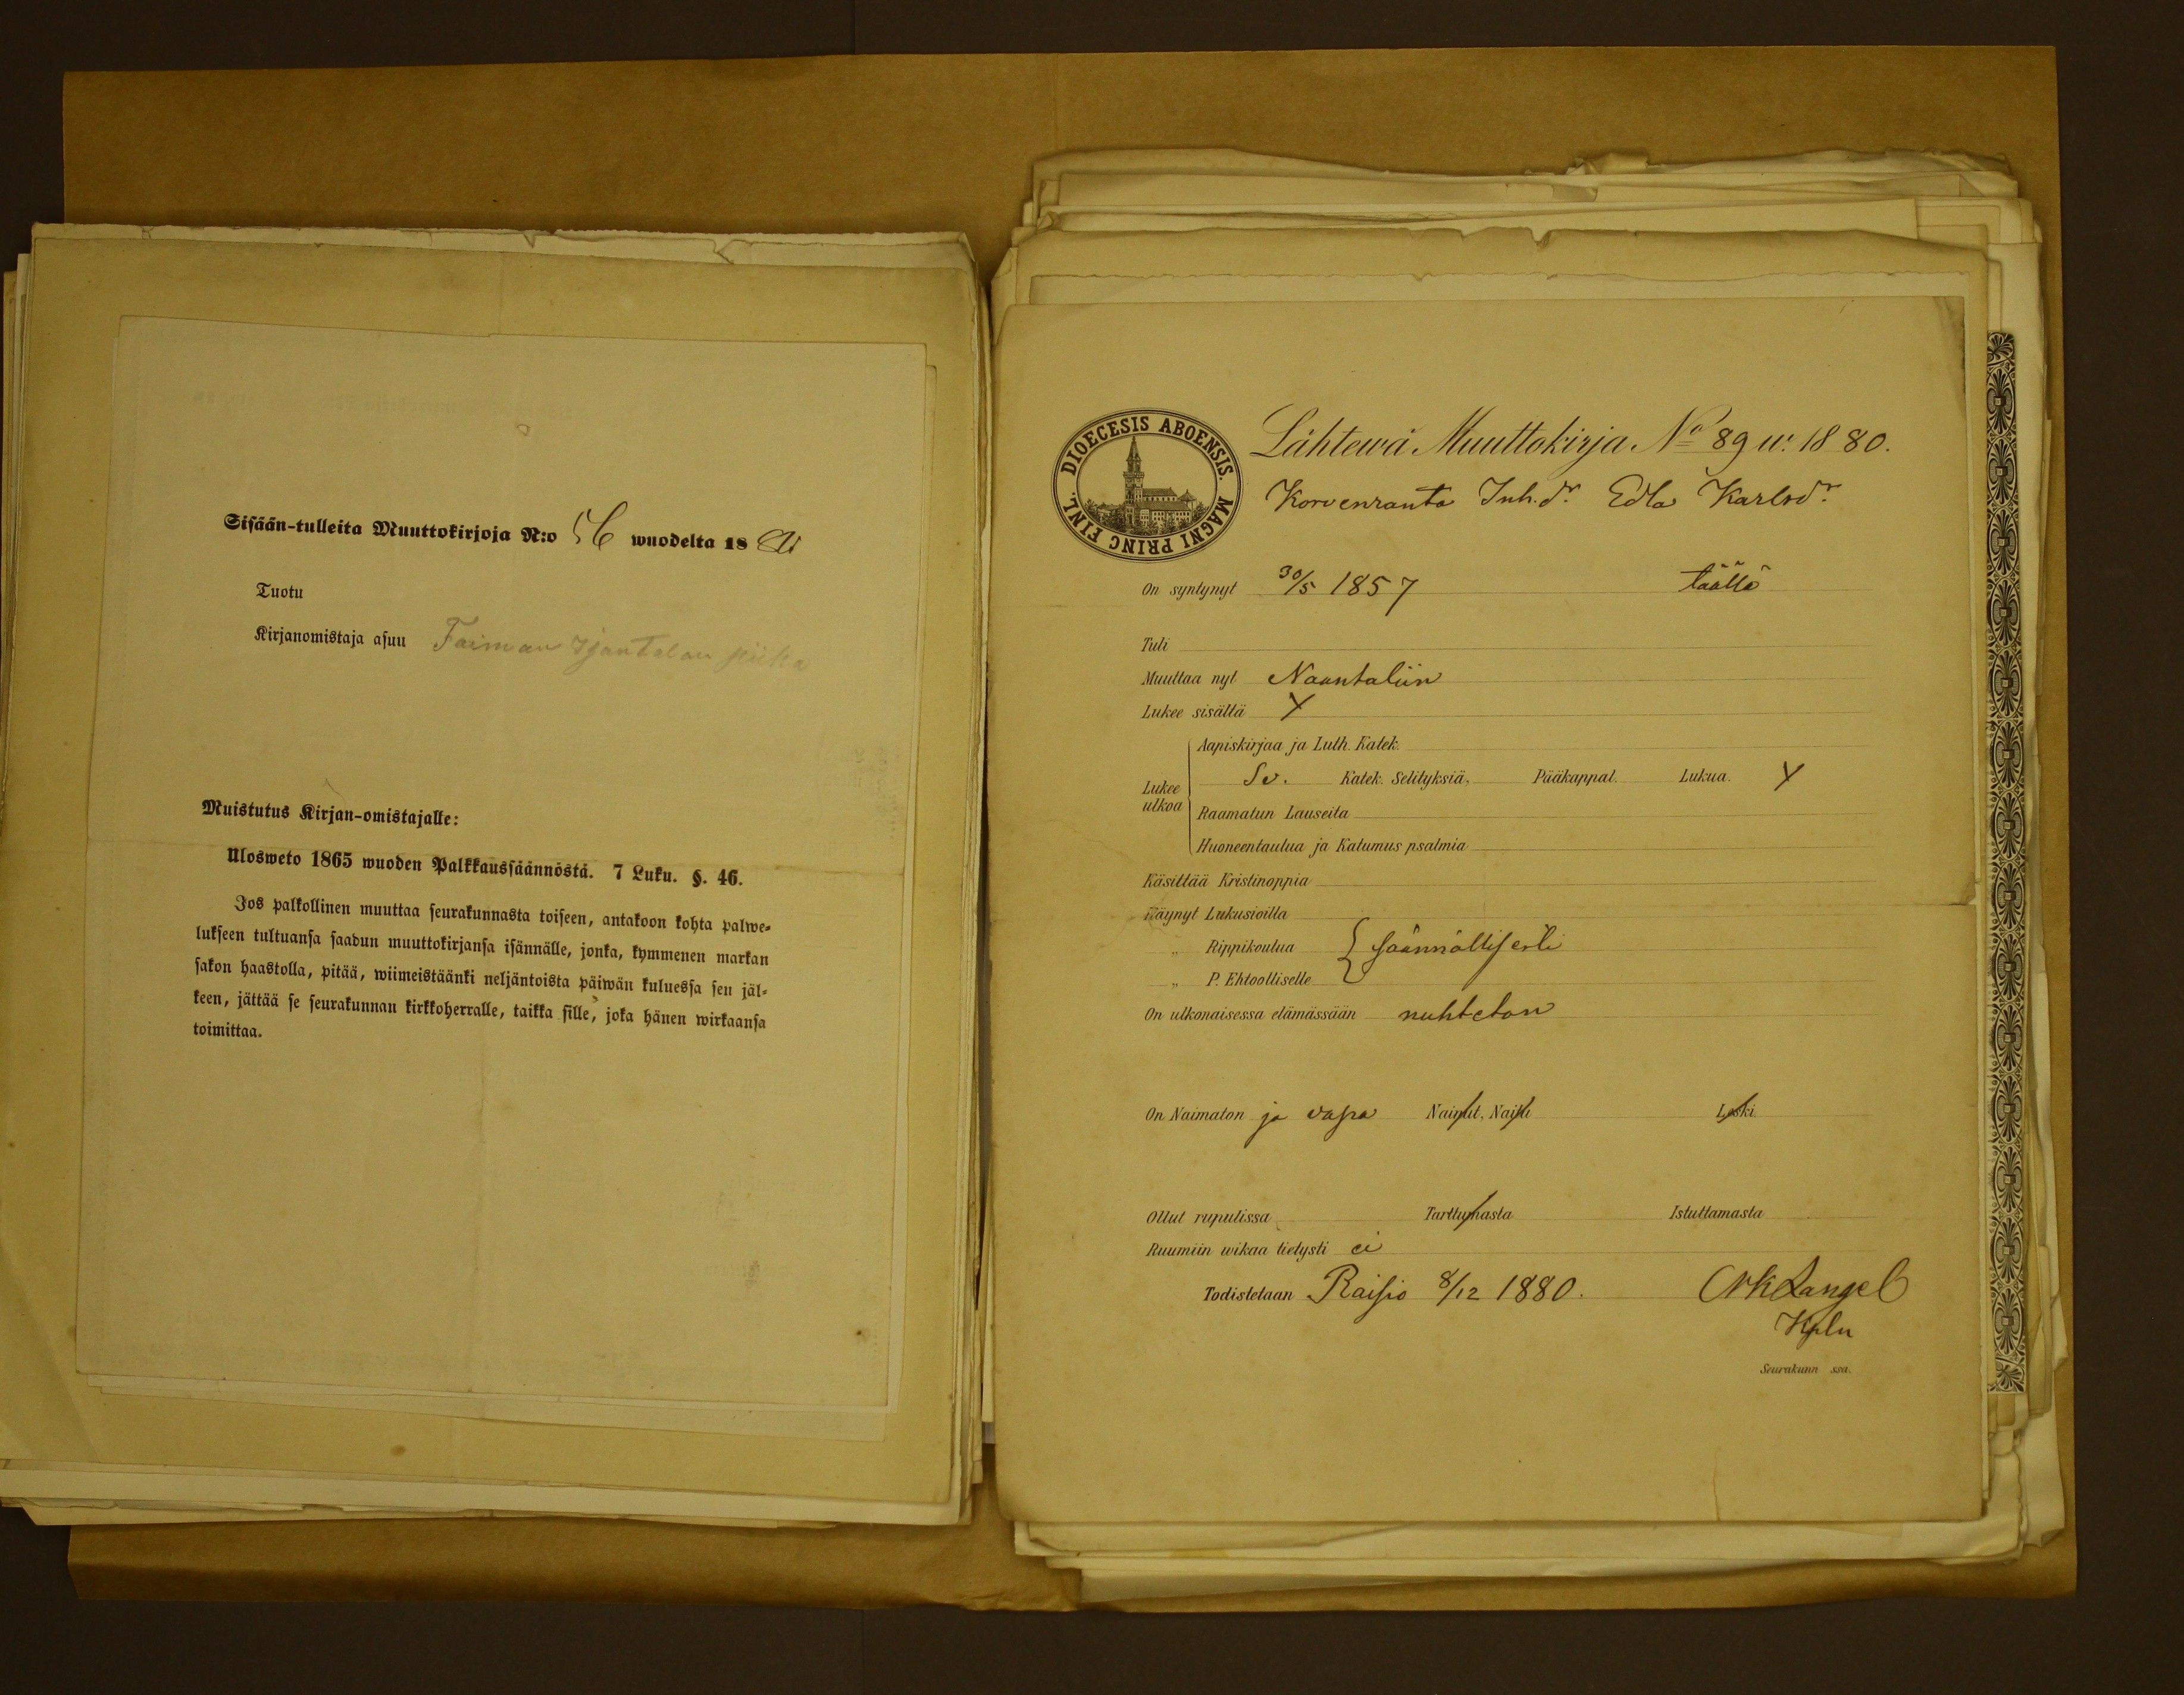 Sisään-tulleita Muuttokirjoja N:o 56 wuodelta 18
Tuotu
Kirjanomistaja asuu piika
Muistutus Kirjan-omistajalle:
Ulosweto 1865 wuoden Palkkaussäännöstä. 7 Luku. §. 46.
Jos palkollinen muuttaa seurakunnasta toiseen, antakoon kohta palwe-
lukseen tultuansa saadun muuttokirjansa isännälle, jonka, kymmenen markan
sakon haastolla, pitää, wiimeistäänki neljäntoista päiwän kuluessa sen jäl-
keen, jättää se seurakunnan kirkkoherralle, taikka sille, joka hänen wirkaansa
toimittaa.
DIOECESIS ABOENSIS. MAGNI PRINC FINL.
Lähtewä Muuttokirja No 89 w. 1880.
Korvenranta Inh.dr Edla Karlsdr
On syntynyt 30/5 1857 täällä
Tuli
Muuttaa nyt Naantaliin
Lukee sisältä Y
Aapiskirjaa ja Luth. Katek.
Lukee ulkoa Sv. Katek. Selityksiä, Pääkappal. Lukua. Y
Raamatun Lauseita
Huoneentaulua ja Katumus psalmia
Käsittää Kristinoppia
Käynyt Lukusioilla
„ Rippikoulua säännöllisesti
„ P. Ehtoolliselle
On ulkonaisessa elämässään nuhteton
On Naimaton ja vapa Nainut, Naitu Leski
Ollut rupulissa Tarttumasta Istuttamasta
Ruumiin wikaa tietysti ei
Todistetaan Raisio 8/12 1880. Langel
Kpln
Seurakunn ssa.